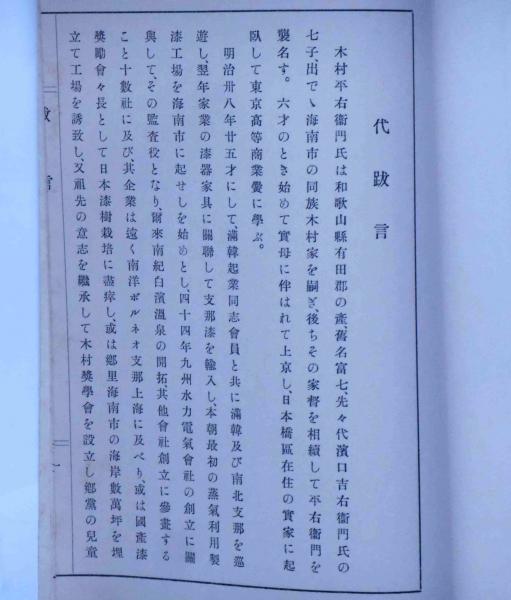 代跋言
木村平右衞門氏は和歌山縣有田郡の產、舊名富七、先々代濱口吉右衞門氏の
七子、出でゝ海南市の同族木村家を嗣ぎ、後ちその家督を相續して平右衞門を
襲名す。六才のとき始めて實母に伴はれて上京し、日本橋區在住の實家に起
臥して東京高等商業黌に學ぶ。
明治卅八年廿五才にして、滿韓起業同志會員と共に滿韓及び南北支那を巡
遊し、翌年家業の漆器家具に關聯して支那漆を輸入し、本朝最初の蒸氣利用製
漆工場を海南市に起せしを始めとし、四十四年九州水力電氣會社の創立に關
與して、その監査役となり、爾來南紀白濱溫泉の開拓、其他會社創立に參畫する
こと十數社に及び、其企業は遠く南洋ボルネオ支那上海に及べり、或は國產漆
獎勵會々長として日本漆樹栽培に盡瘁し、或は鄕里海南市の海岸數萬坪を埋
立て工場を誘致し、又祖先の意志を繼承して木村獎學會を設立し鄕黨の兒童
言
一